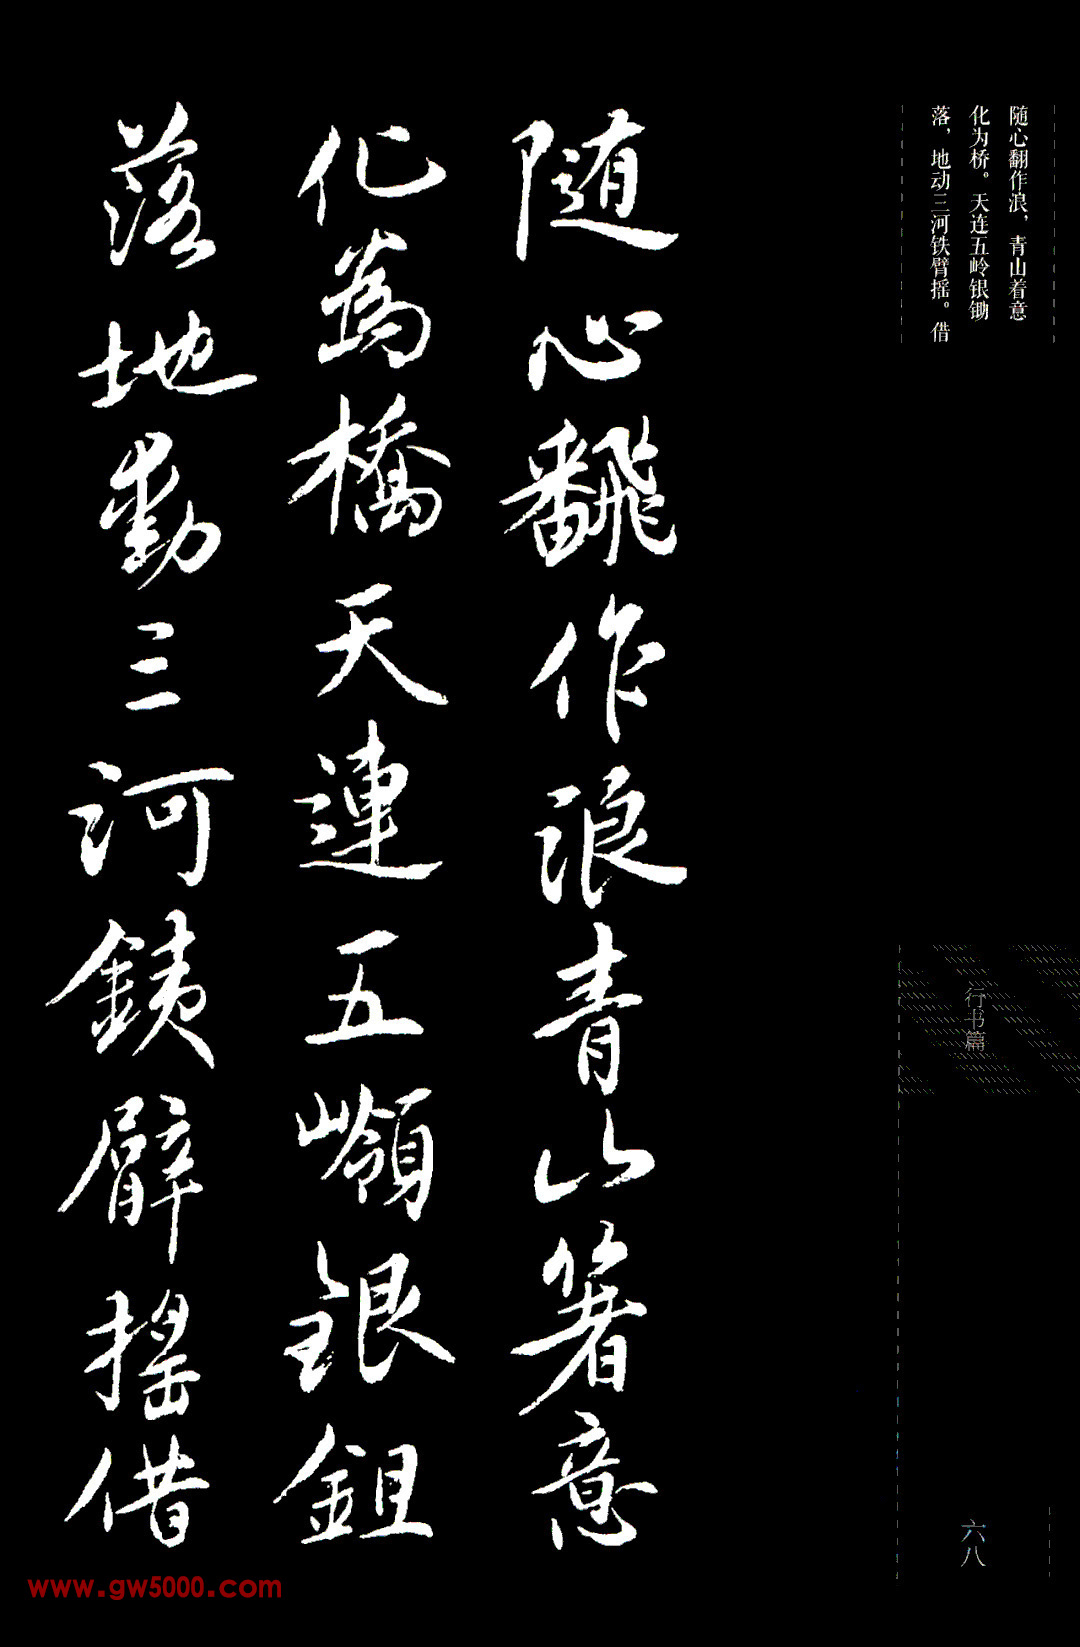 随心翻作浪，青山着意
化为桥。天连五岭银锄
落，地动三河铁臂摇。借
随心飜作浪青山箸意
化為橋天連五嶺銀鉏
落地動三河鐵臂摇借
行书篇
六八
www.gw5000.com